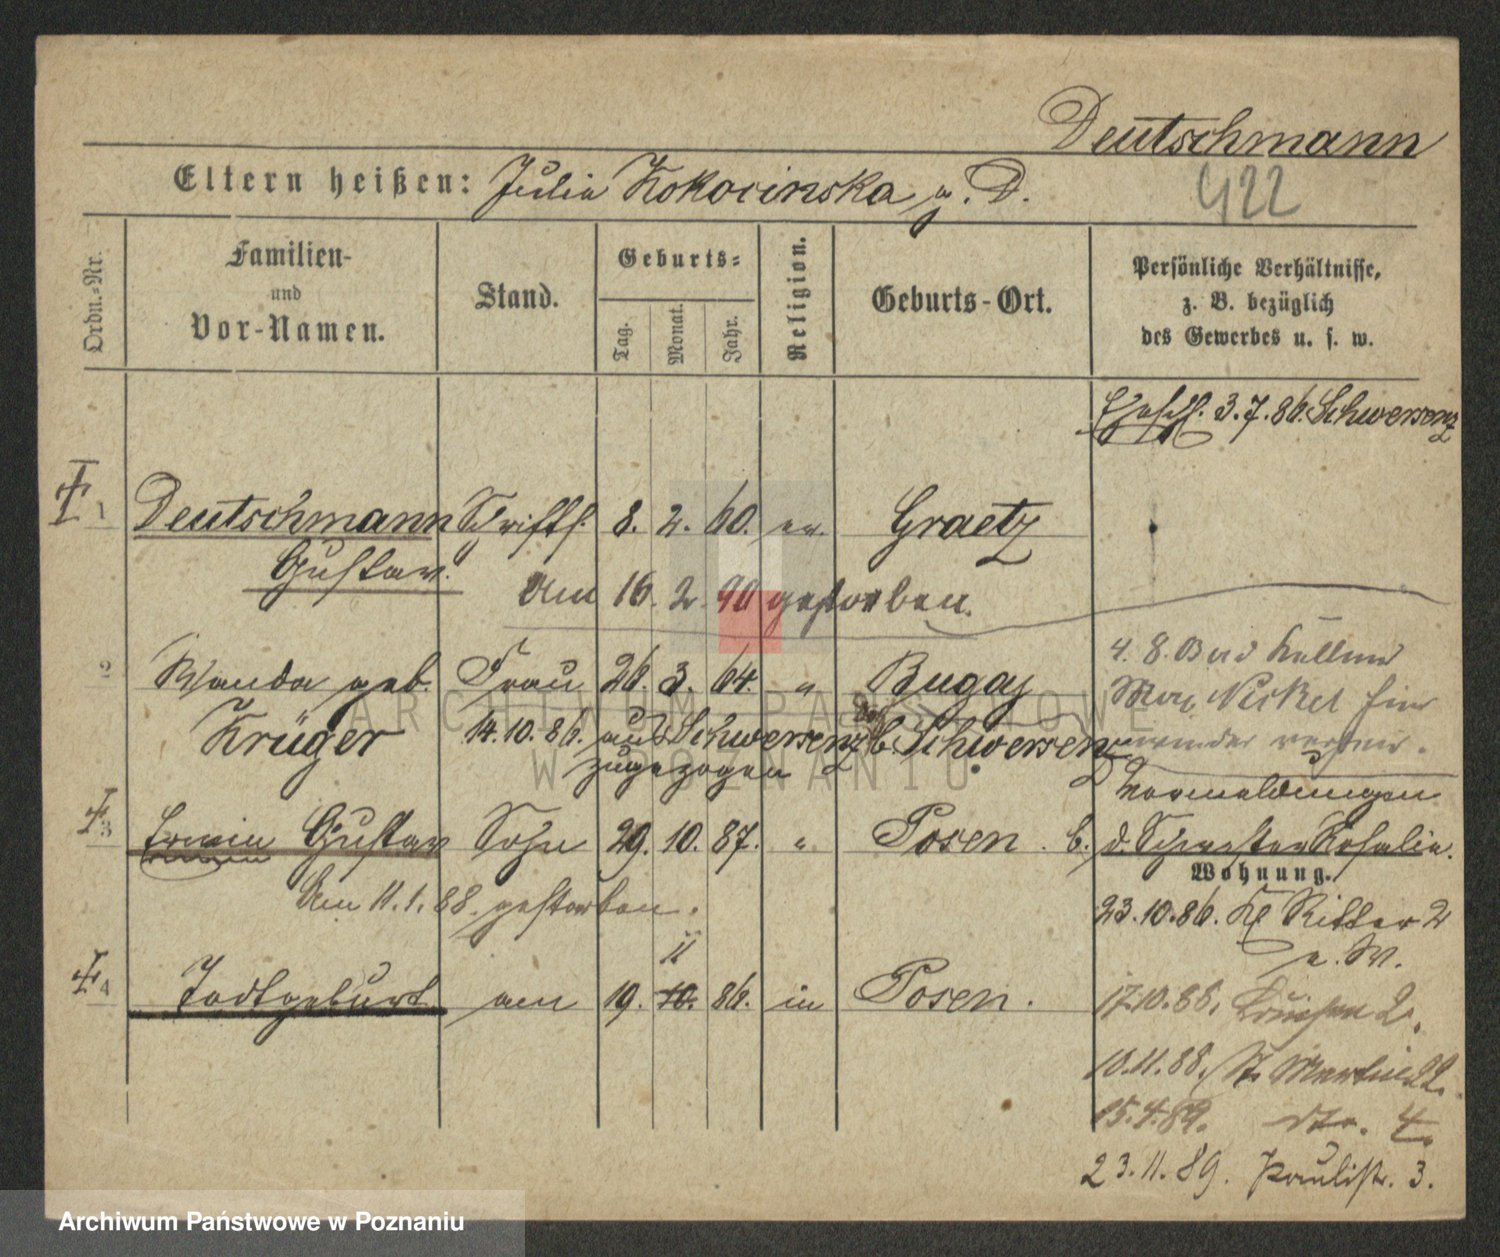 Deutschmann
Eltern heißen: Julie Kokocinska u. D.
422
Ordn.-Nr.
Familien-
und
Vor-Namen.
Stand.
Geburts-
Tag.
Monat.
Jahr.
Religion.
Geburts-Ort.
Persönliche Verhältnisse,
z. B. bezüglich
des Gewerbes u. s. w.
3.7.86. Schwersenz
1 Deutschmann Schrifts. 8. 2. 60. ev. Graetz
Gustav.
Am 16. 2. 90 gestorben.
2 Wanda geb. Frau 26. 3. 64. " Bugaj
Krüger 14.10.86. aus Schwersenz b. Schwersenz
zugezogen
4. 8. Kellner
Max Nickel
3 Erwin Gustav Sohn 29. 10. 87. " Posen. b.
Am 11.1.88. gestorben.
Vormeldungen
d. Schwester Rosalie.
Wohnung.
23.10.86. Kl Ritter 2
a. W.
11
4 Todtgeburt am 19. 10. 86. in Posen.
17.10.88. 2.
10.11.88. St. Martin 22.
15.4.89. dto. 4.
23.11.89. Paulistr. 3.
ARCHIWUM PAŃSTWOWE
W POZNANIU
Archiwum Państwowe w Poznaniu